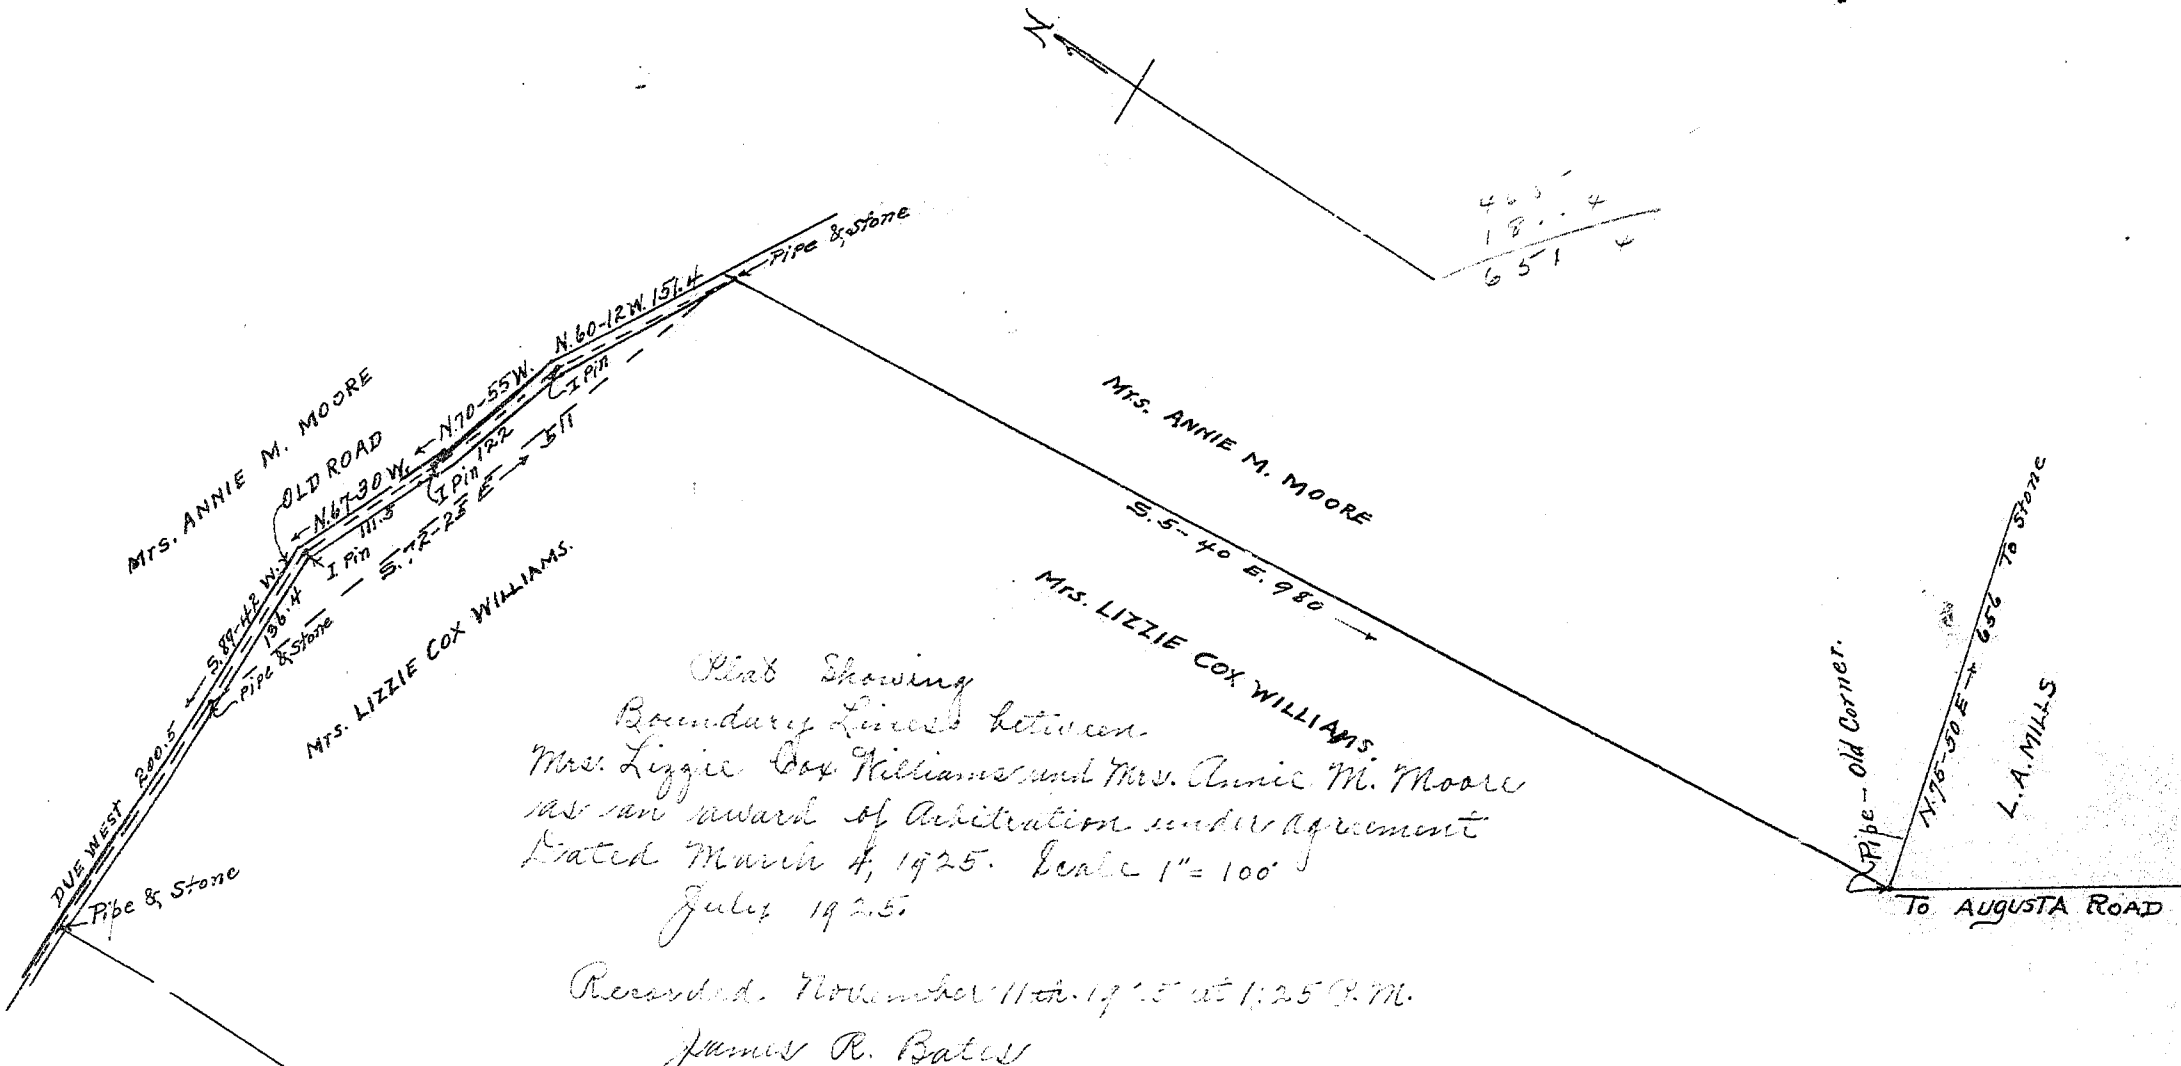 N
465
18..4
651 4
Pipe & Stone
N.60-12W. 151.4
I Pin
N.70-55W.
122
I Pin
Mrs. ANNIE M. MOORE
OLD ROAD
N.67-30W.
111.5
I Pin
S.72-25 E 511
S.89-42 W.
136.4
Pipe & Stone
Mrs. LIZZIE COX WILLIAMS.
DUE WEST 200.5
Pipe & Stone
Mrs. ANNIE M. MOORE
S.5-40 E. 980
Mrs. LIZZIE COX WILLIAMS
Pipe - Old Corner.
N.75-50 E 656 To Stone
L.A. MILLS
To AUGUSTA ROAD
Plat Showing
Boundary Lines between
Mrs. Lizzie Cox Williams and Mrs. Annie M. Moore
as an award of Arbitration under agreement
Dated March 4, 1925. Scale 1"=100'
July 1925.
Recorded November 11th 19 5 at 1:25 P.M.
James R. Bates